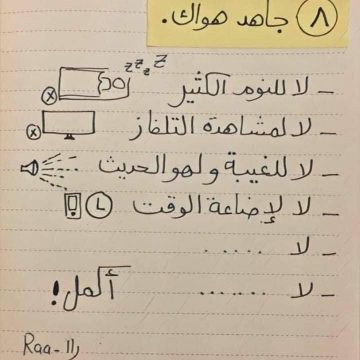 ٨ جاهد هواك.
z z z z
– لا للنوم الكثير
– لا لمشاهدة التلفاز
– لا للغيبة و لهو الحديث
– لا لإضاعة الوقت
– لا .....
– لا ...... أكمل!
Raa-